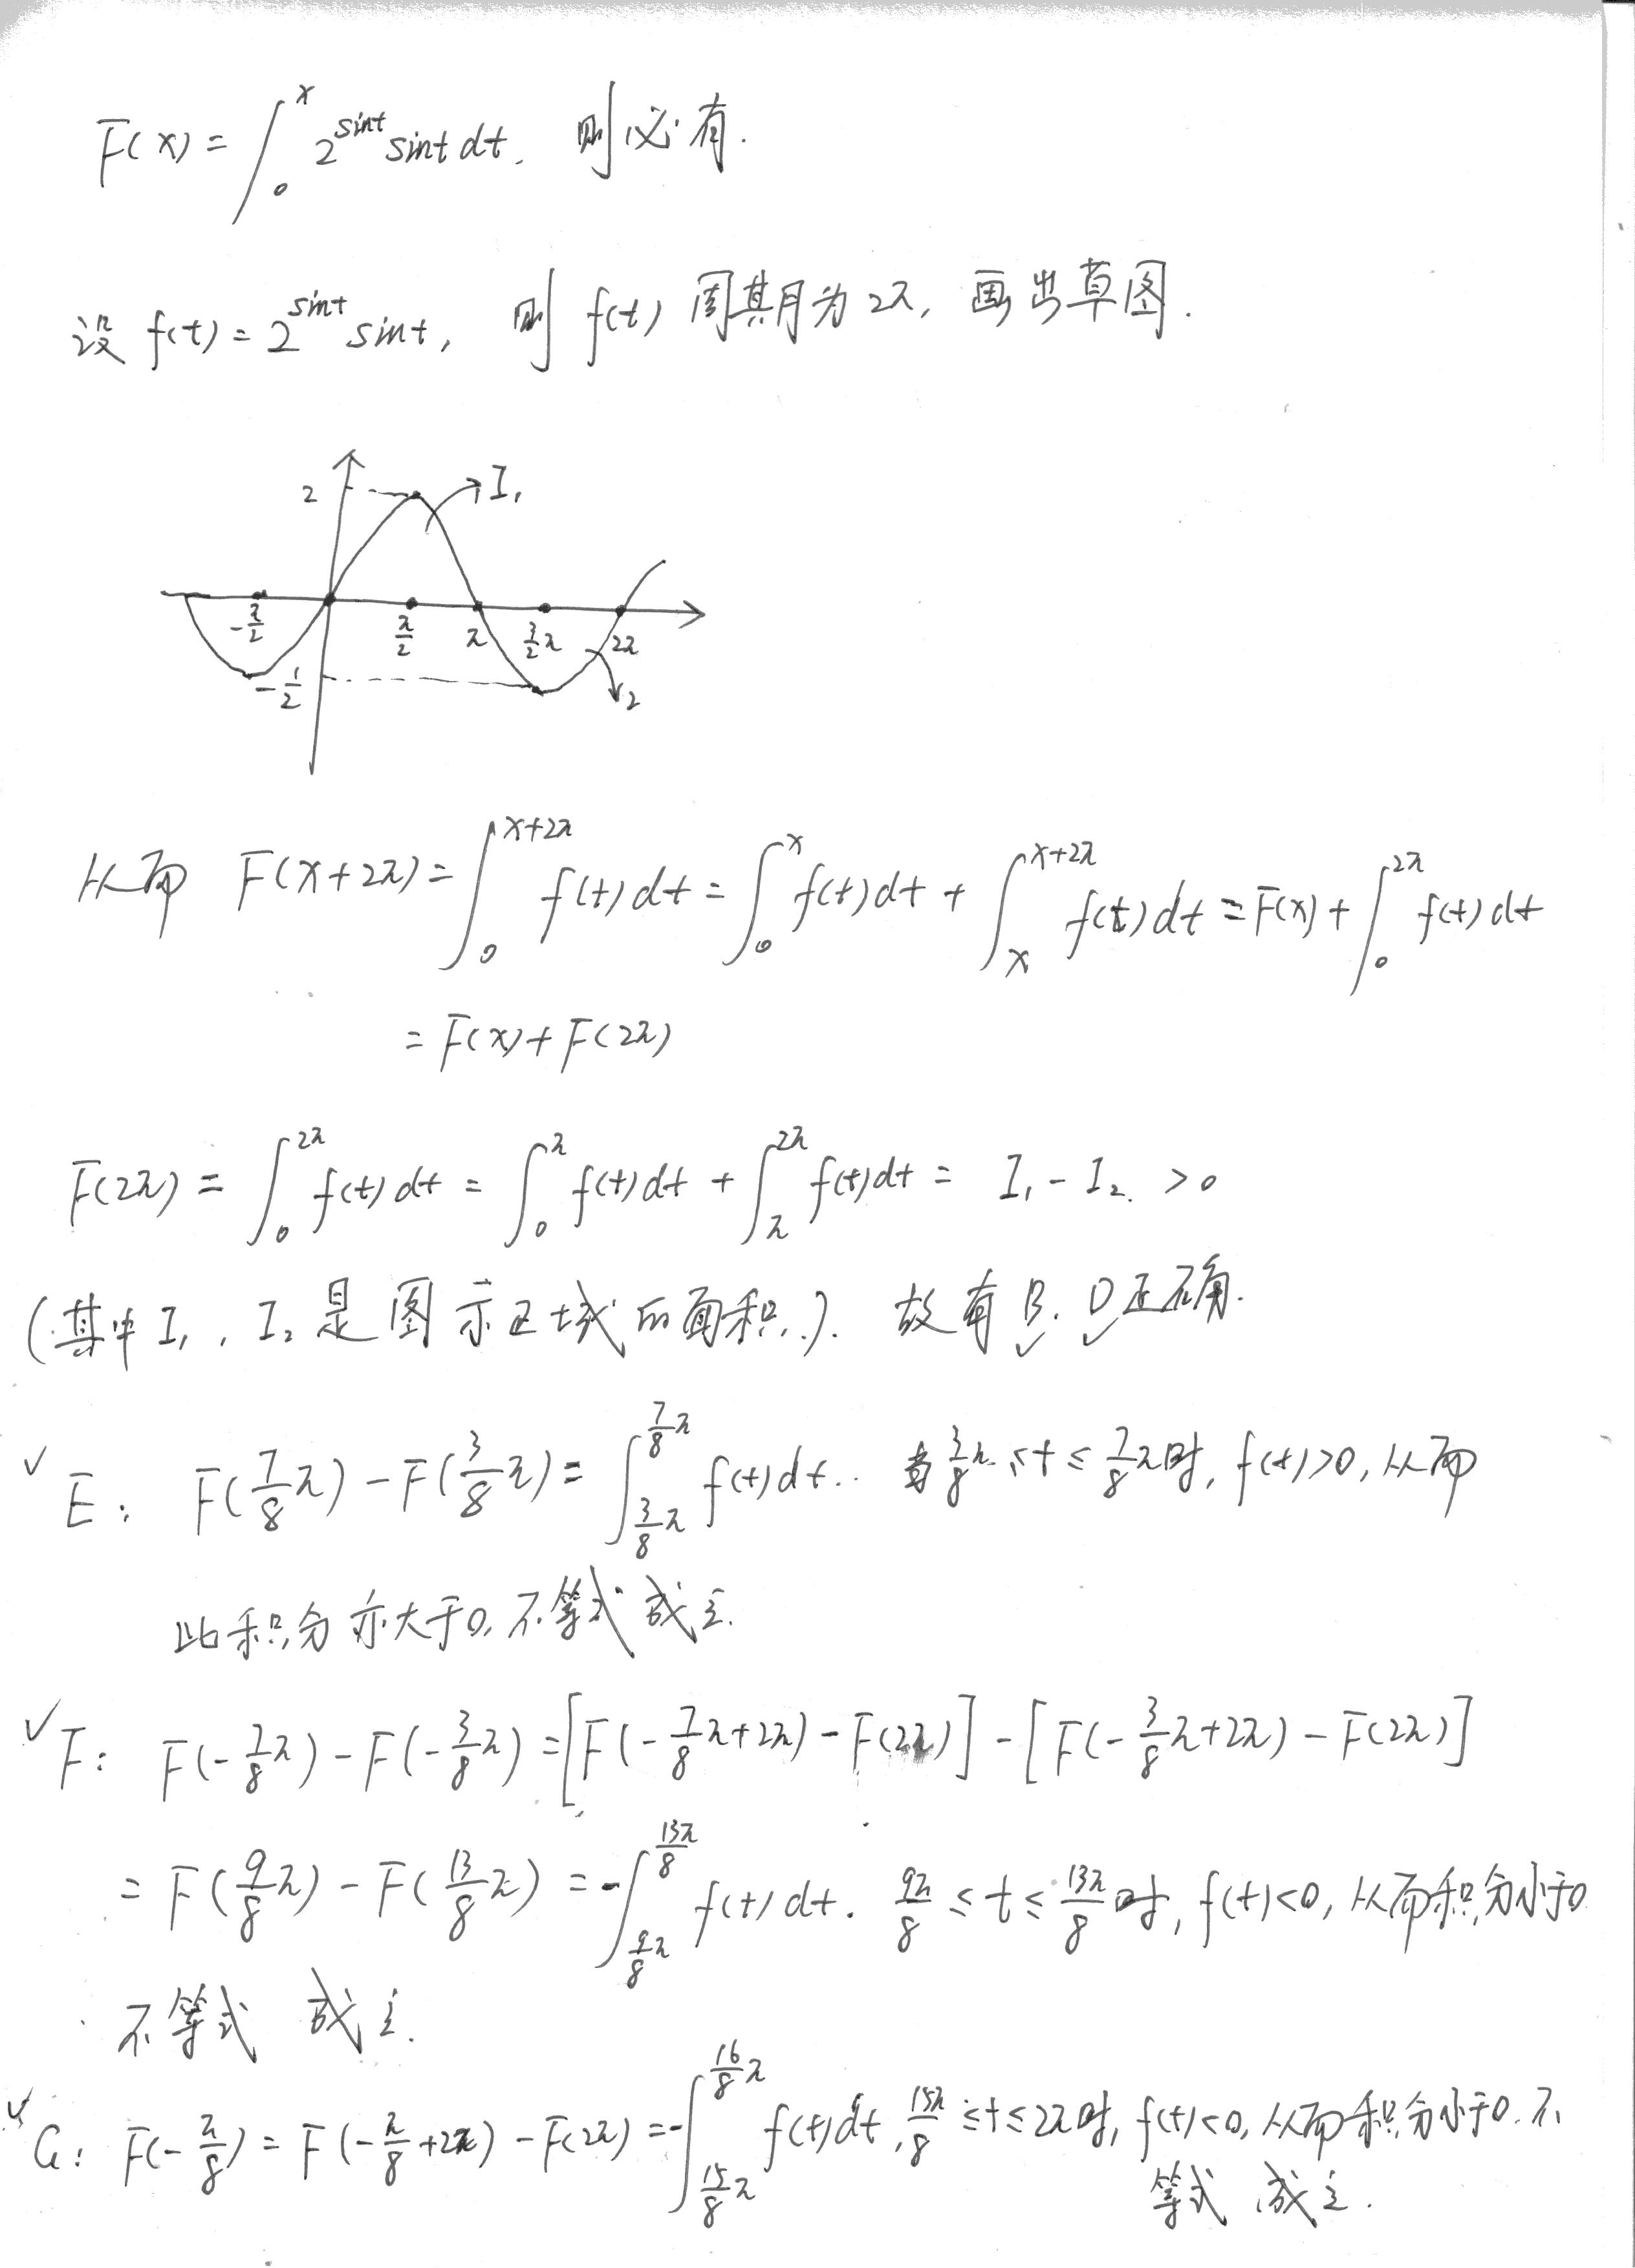 F(x) = ∫₀ˣ 2^{sint} sint dt. 则必有.
设 f(t) = 2^{sint} sint, 则 f(t) 周期为 2π, 画出草图.
2 I₁
-π/2 π/2 π 3/2π 2π
-1/2 I₂
从而 F(x+2π) = ∫₀^{x+2π} f(t)dt = ∫₀ˣ f(t)dt + ∫ₓ^{x+2π} f(t)dt = F(x) + ∫₀^{2π} f(t)dt
= F(x) + F(2π)
F(2π) = ∫₀^{2π} f(t)dt = ∫₀^π f(t)dt + ∫_π^{2π} f(t)dt = I₁ - I₂. >0
(其中 I₁, I₂ 是图示区域的面积.). 故有 B. D 正确.
✓ E: F(7/8π) - F(3/8π) = ∫_{3/8π}^{7/8π} f(t)dt. 当 3/8π ≤ t ≤ 7/8π 时, f(t)>0, 从而
此积分亦大于0, 不等式成立.
✓ F: F(-7/8π) - F(-3/8π) = [F(-7/8π+2π) - F(2π)] - [F(-3/8π+2π) - F(2π)]
= F(9/8π) - F(13/8π) = -∫_{9/8π}^{13π/8} f(t)dt. 9π/8 ≤ t ≤ 13π/8 时, f(t)<0, 从而积分小于0
不等式 成立.
✓ G: F(-π/8) = F(-π/8+2π) - F(2π) = -∫_{15/8π}^{16/8π} f(t)dt, 15π/8 ≤ t ≤ 2π时, f(t)<0, 从而积分小于0. 不
等式 成立.